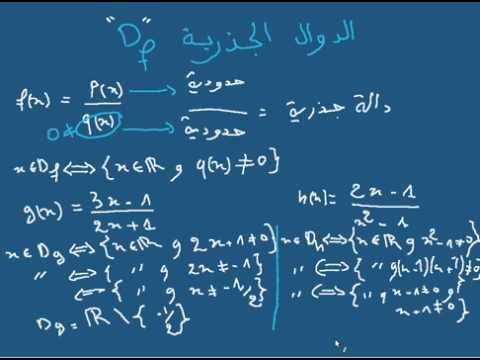 الدوال الجذرية "D_f"
f(x) = P(x)/q(x) → حدودية / حدودية = دالة جذرية
0 ≠
x ∈ D_f ⟺ {x ∈ ℝ و q(x) ≠ 0}
g(x) = (3x - 1)/(2x + 1)
x ∈ D_g ⟺ {x ∈ ℝ و 2x+1 ≠ 0}
" ⟺ { " و 2x ≠ -1}
⟺ { " و x ≠ -1/2}
D_g = ℝ \ {-1/2}
h(x) = (2x - 1)/(x² - 1)
x ∈ D_h ⟺ {x ∈ ℝ و x²-1 ≠ 0}
" ⟺ { " و (x-1)(x+1) ≠ 0}
" ⟺ { " و x-1 ≠ 0 و
x+1 ≠ 0}